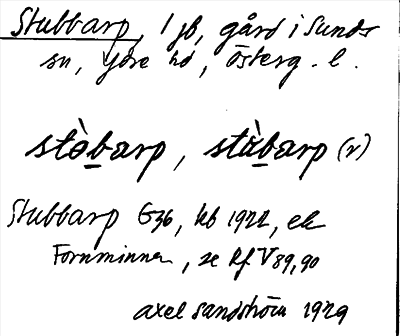 Stubbarp, 1 jb, gård i Sunds
sn, Ydre hd, Österg. l.
stòbarp, stùbarp (r)
Stubbarp G36, kb 1922, ek
Fornminnen, se Rf V 89,90
Axel Sandström 1929